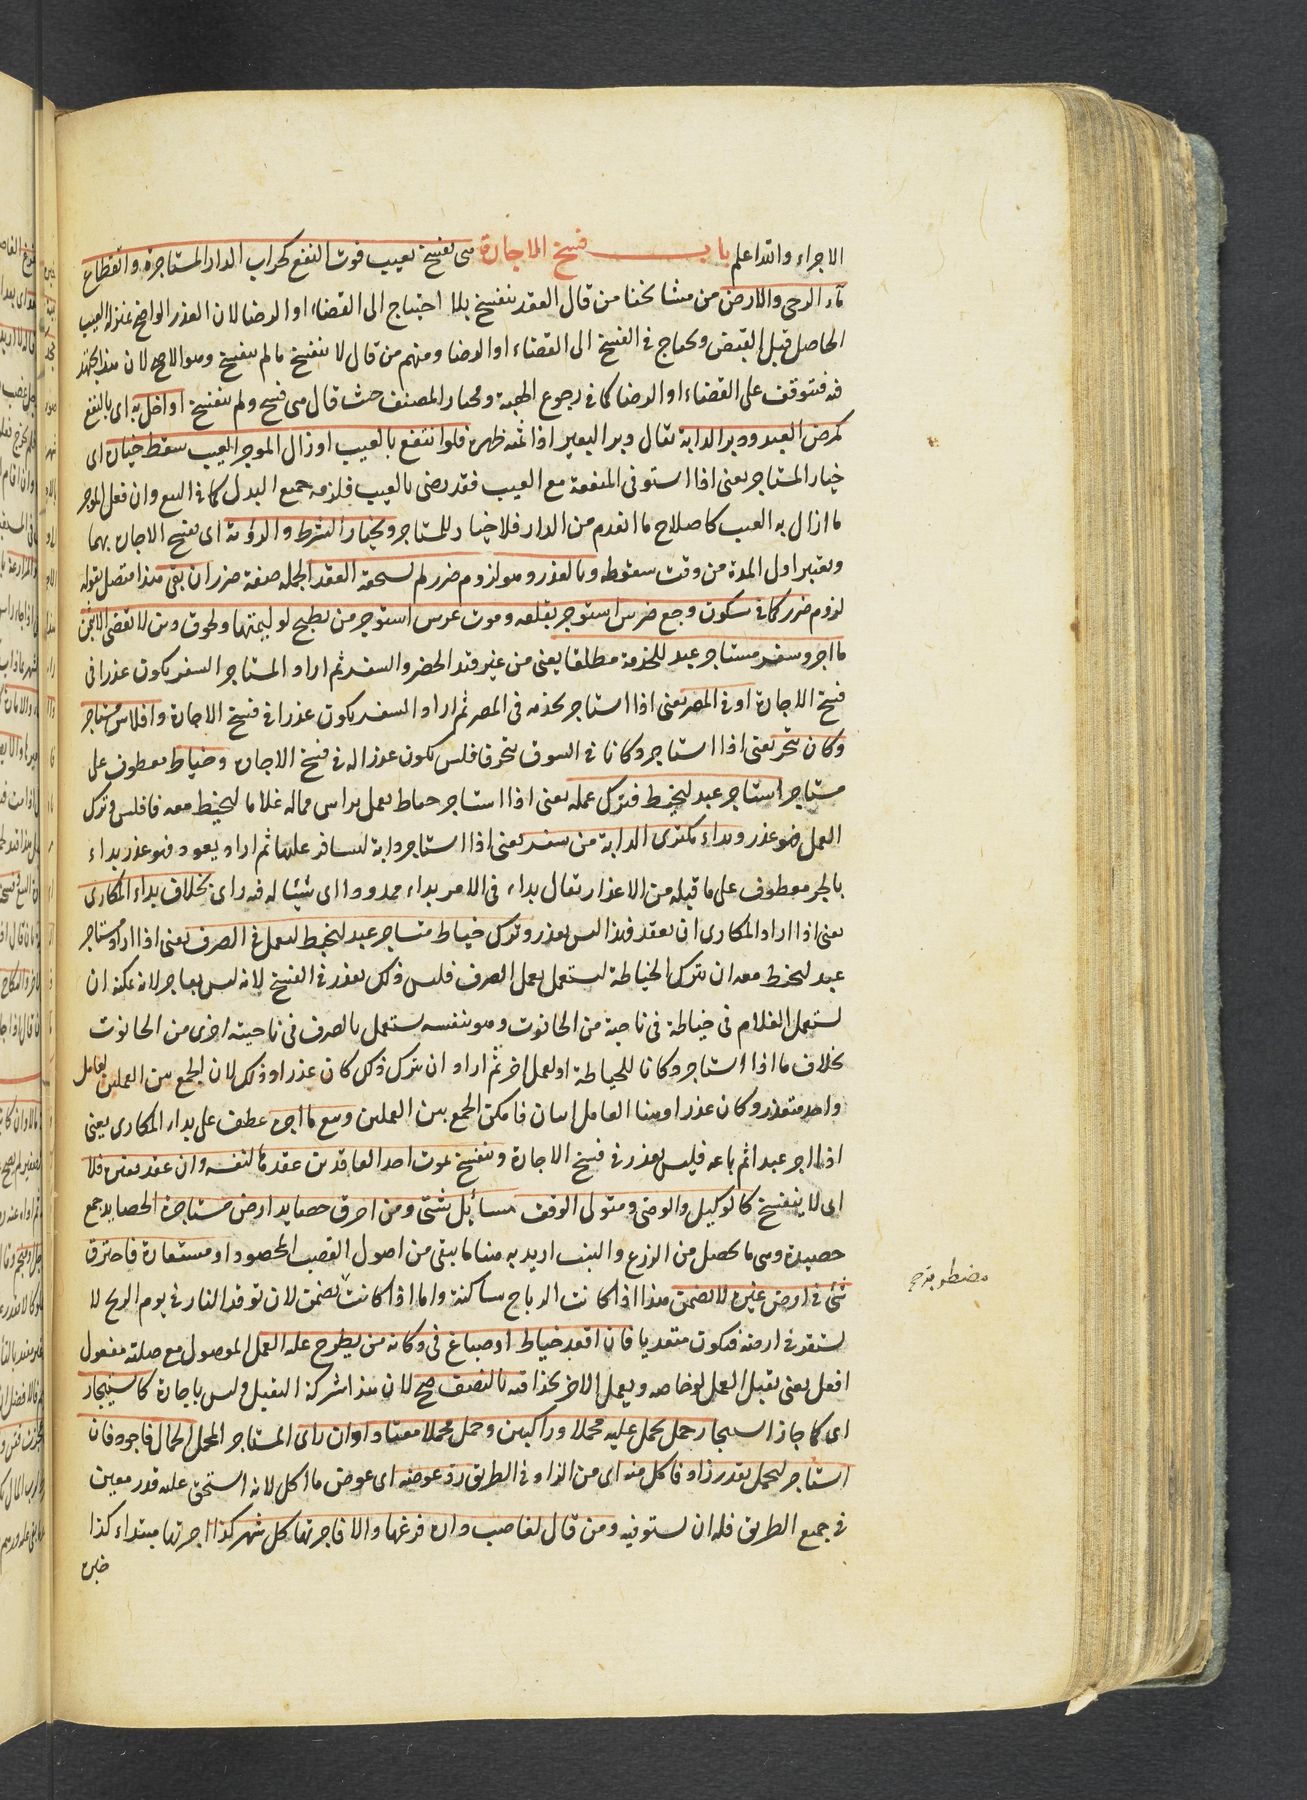 الاجراء والله اعلم باب فسخ الاجارة هى تفسخ بعيب فوت النفع كخراب الدار المستاجرة وانقطاع
ماء الرحى والارض من مشائخنا من قال العقد ينفسخ بلا احتياج الى القضاء او الرضا لان العذر الواضح بمنزلة العيب
الحاصل قبل القبض ويحتاج فى الفسخ الى القضاء او الرضا ومنهم من قال لا ينفسخ ما لم يفسخ وهو الاصح لان هذا مجتهد
فيه فتوقف على القضاء او الرضا كما فى رجوع الهبة ومختار المصنف حيث قال هى فسخ ولم تنفسخ او اخل به اى بالنفع
كمرض العبد ودبر الدابة يقال دبر البعير اذا ثمه ظهره فلو انتفع بالعيب او زال الموجر العيب سقط خياره اى
خيار المستاجر يعنى اذا استوفى المنفعة مع العيب فقد رضى بالعيب فلزمه جميع البدل كما فى البيع وان فعل الموجر
ما ازال به العيب كاصلاح ما انهدم من الدار فلا خيار للمستاجر وبخيار الشرط والرؤية اى يفسخ الاجارة بهما
ويعتبر اول المدة من وقت سقوطه وبالعذر وهو لزوم ضرر لم يستحقه العقد الجملة صفة ضرر ان بقى هذا متصل بقوله
لزوم ضرر كما فى سكون وجع ضرس استوجر بقلعه وموت عرس استوجر من يطبخ لوليمتها ولحوق دين لا يقضى الا بثمن
ما اجر وسفر مستاجر عبد للخدمة مطلقا يعنى من غير قيد الحضر والسفر ثم اراد المستاجر السفر يكون عذرا فى
فسخ الاجارة او فى المصر يعنى اذا استاجر بخدمة فى المصر ثم اراد السفر يكون عذرا فى فسخ الاجارة وافلاس مستاجر
دكان يتجر يعنى اذا استاجر دكانا فى السوق يتجر فافلس يكون عذرا له فى فسخ الاجارة وخياط معطوف على
مستاجر استاجر عبد ليخيط فترك عمله يعنى اذا استاجر خياط يعمل براس ماله غلاما ليخيط معه فافلس فترك
العمل فهو عذر وبداء مكترى الدابة من سفر يعنى اذا استاجر دابة ليسافر عليها ثم اراد يعود فهو عذر بداء
بالجر معطوف على ما قبله من الاعذار يقال بداء فى الامر بداء ممدودا اى شيئا له فيه راى بخلاف بداء المكارى
يعنى اذا اراد المكارى ان يعقد فهذا ليس بعذر وترك خياط مستاجر عبد ليخيط ليعمل فى الصرف يعنى اذا اراد مستاجر
عبد ليخيط معه ان يترك الخياطة ليستعمل بعمل الصرف فليس ذلك بعذر فى الفسخ لانه ليس بعاجر لانه يمكنه ان
يستعمل الغلام فى خياطة فى ناحية من الحانوت وهو بنفسه يستعمل بالصرف فى ناحيته اخرى من الحانوت
بخلاف ما اذا استاجر دكانا للخياطة او لعمل اخر ثم اراد ان يترك ذلك كان عذرا وذلك لان الجمع بين العملين لعامل
واحد متعذر وكان عذرا وهنا العامل اسان فامكن الجمع بين العملين وبيع ما اجره عطف على بداء المكارى يعنى
اذا اجر عبدا ثم باعه فليس بعذر فى فسخ الاجارة وتنفسخ بموت احد العاقدين عقدها لنفسه وان عقد لغيره فلا
اى لا ينفسخ كالوكيل والوصى ومتولى الوقف مسائل شتى ومن احرق حصايد ارض مستاجرة الحصايد جمع
حصيدة وهى ما تحصل من الزرع والنبت اريد به هنا ما يبقى من اصول القصب المحصود او مستعارة فاحترق
شئ فى ارض غيره لا يضمن هذا اذا كانت الرياح ساكنة واما اذا كانت يضمن لان توقد النار فى يوم الريح لا
يستقر فى ارضه فيكون متعديا فان اقعد خياط او صباغ فى دكانه من يطرح عليه العمل الموصول مع صلته مفعول
افعل يعنى يقبل العمل لوخاصه ويعمل الاخر بحذاقته بالنصف صح لان هذا شركة التقبل وليس باجارة كاستيجار
اى كما جاز استيجار جمل يحمل عليه محملا وراكبين وحمل محملا معتادا وان راى المستاجر المحمل الحمال فاجود فان
استاجر لحمل بقدر زاد فاكل منه اى من الزاد فى الطريق رد عوضه اى عوض ما اكل لانه استحق عليه قدر معين
فى جميع الطريق فله ان يستوفيه ومن قال لغاصب داره فرغها والا فاجرتها كل شهر كذا اجرتها مبتداء كذا
خبره